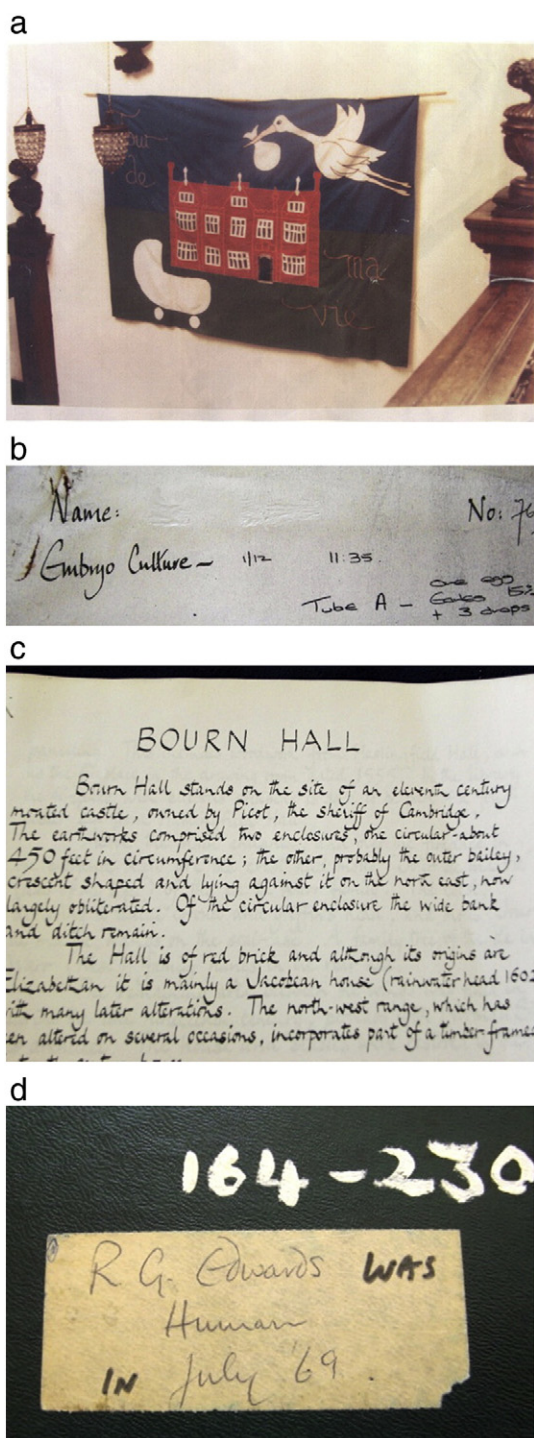 a
de
ma
vie
b
Name: No: 76
Embryo Culture - 1/12 11:35.
one egg
Tube A - Earles 15%
+ 3 drops
c
BOURN HALL
Bourn Hall stands on the site of an eleventh century
moated castle, owned by Picot, the sheriff of Cambridge.
The earthworks comprised two enclosures, one circular-about
450 feet in circumference; the other, probably the outer bailey,
crescent shaped and lying against it on the north east, now
largely obliterated. Of the circular enclosure the wide bank
and ditch remain.
The Hall is of red brick and although its origins are
Elizabethan it is mainly a Jacobean house (rainwater head 1602
with many later alterations. The north-west range, which has
een altered on several occasions, incorporates part of a timber-frame
d
164-230
R G. Edwards WAS
Human
IN July '69.